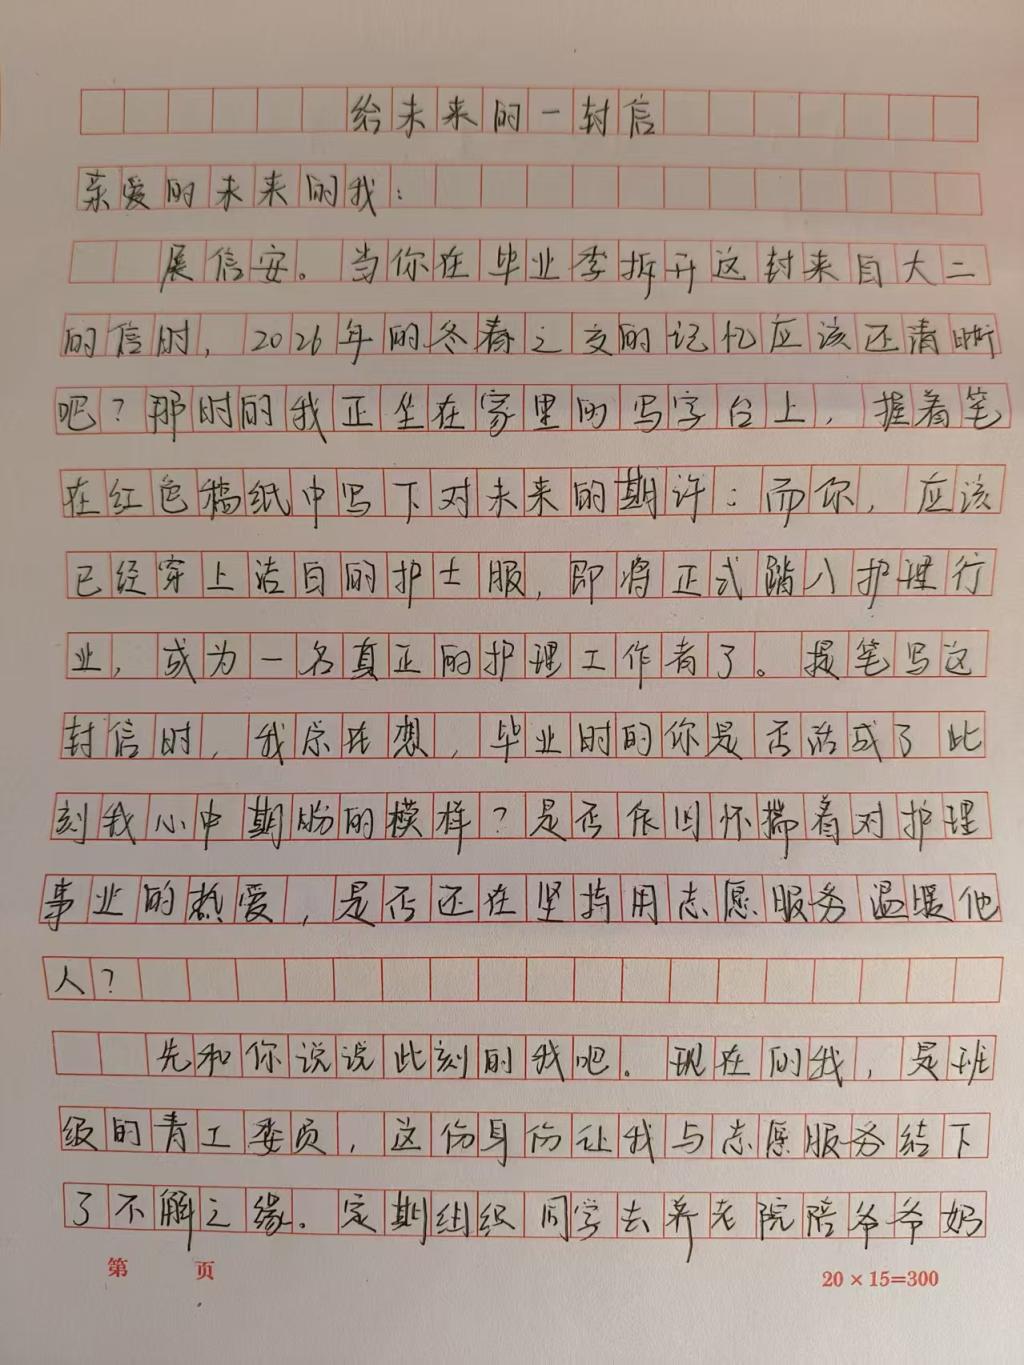 给未来的一封信
亲爱的未来的我：
展信安。当你在毕业季拆开这封来自大二
的信时，2026年的冬春之交的记忆应该还清晰
吧？那时的我正坐在家里的写字台上，握着笔
在红色稿纸中写下对未来的期许；而你，应该
已经穿上洁白的护士服，即将正式踏入护理行
业，成为一名真正的护理工作者了。提笔写这
封信时，我总在想，毕业时的你是否活成了此
刻我心中期盼的模样？是否依旧怀揣着对护理
事业的热爱，是否还在坚持用志愿服务温暖他
人？
先和你说说此刻的我吧。现在的我，是班
级的青工委员，这份身份让我与志愿服务结下
了不解之缘。定期组织同学去养老院陪爷爷奶
第 页
20×15=300